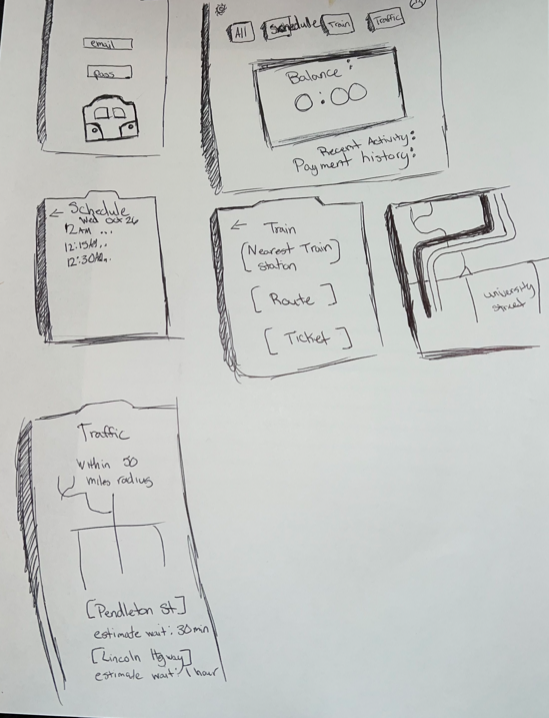 email
pass
All
Schedule
Train
Traffic
Balance:
0:00
Recent Activity:
Payment history:
← Schedule
Wed Oct 26
12 AM ...
12:15AM..
12:30AM..
← Train
[Nearest Train]
station
[Route]
[Ticket]
university
street
Traffic
within 50
miles radius
[Pendleton St]
estimate wait: 30 min
[Lincoln Hgway]
estimate wait: 1 hour